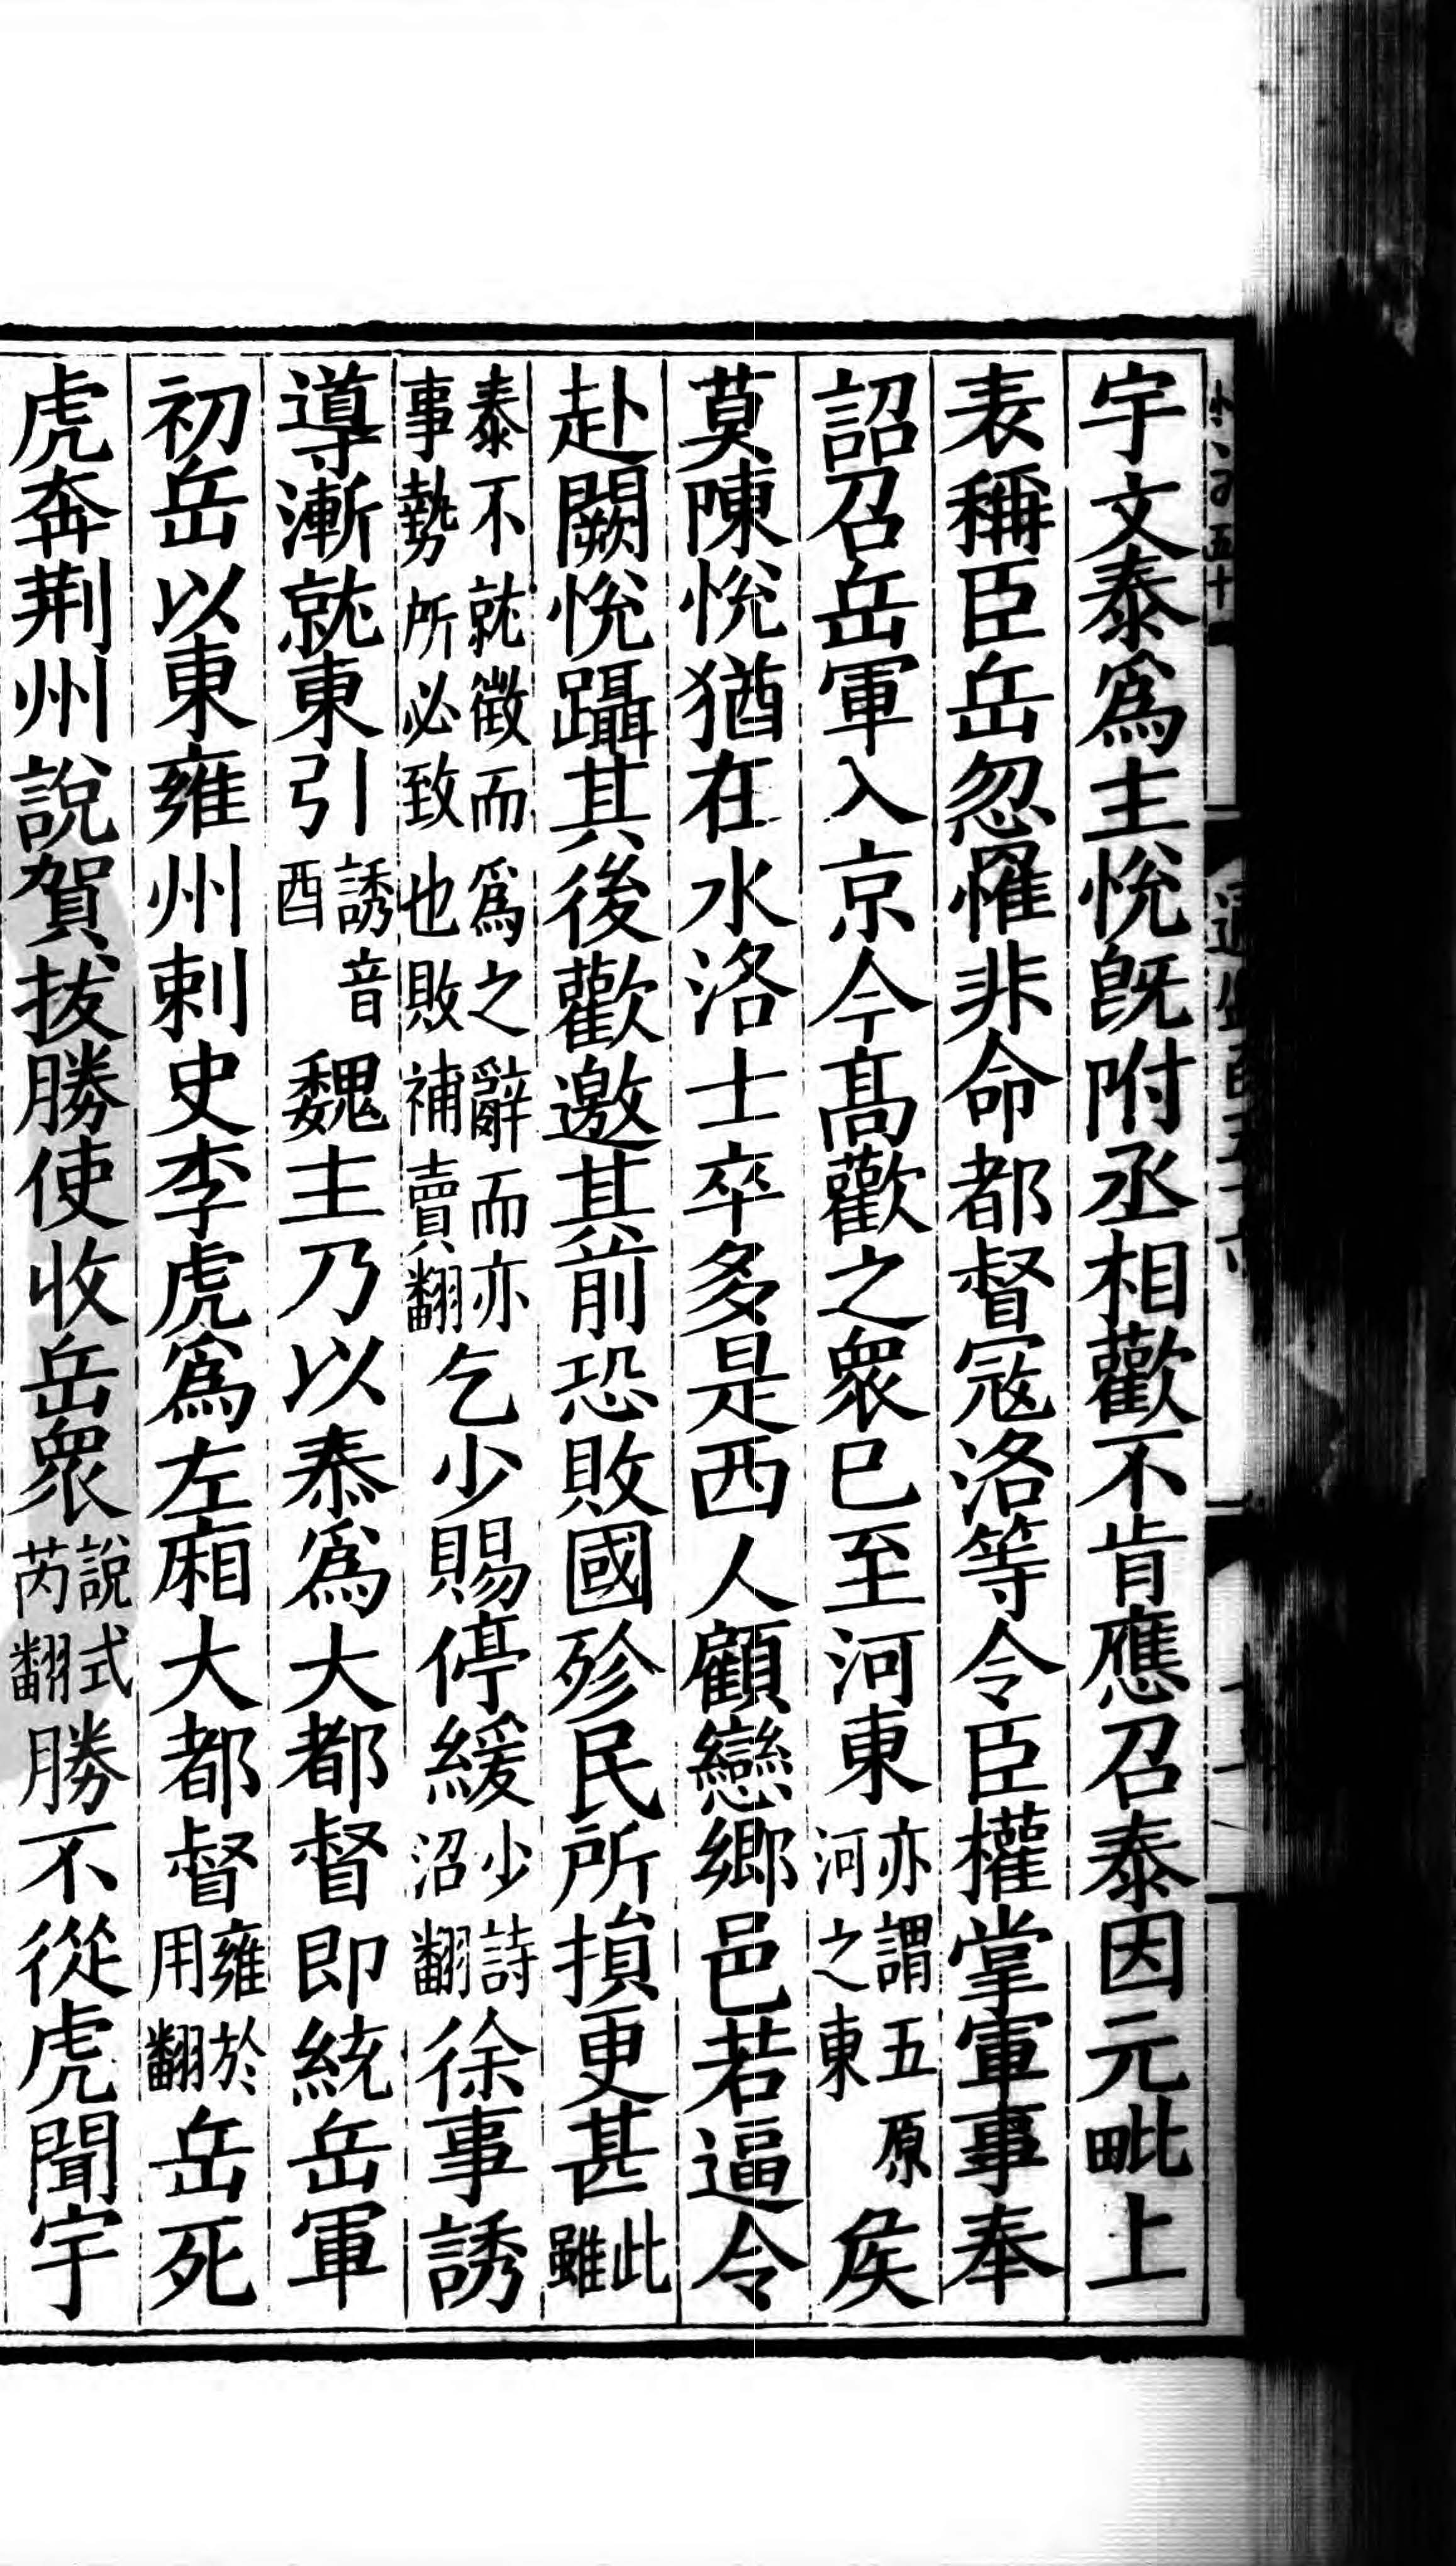 宇文泰爲主悅旣附丞相歡不肯應召泰因元毗上
表稱臣岳忽罹非命都督寇洛等令臣權掌軍事奉
詔召岳軍入京今髙歡之衆已至河東亦謂五原河之東矦
莫陳悅猶在水洛士卒多是西人顧戀鄉邑若逼令
赴闕悅躡其後歡邀其前恐敗國殄民所損更甚此雖
泰不就徵而爲之辭而亦事勢所必致也敗補賣翻乞少賜停緩少詩沼翻徐事誘
導漸就東引誘音酉魏主乃以泰爲大都督即統岳軍
初岳以東雍州刺史李虎爲左廂大都督雍於用翻岳死
虎奔荆州說賀拔勝使收岳衆說式芮翻勝不從虎聞宇